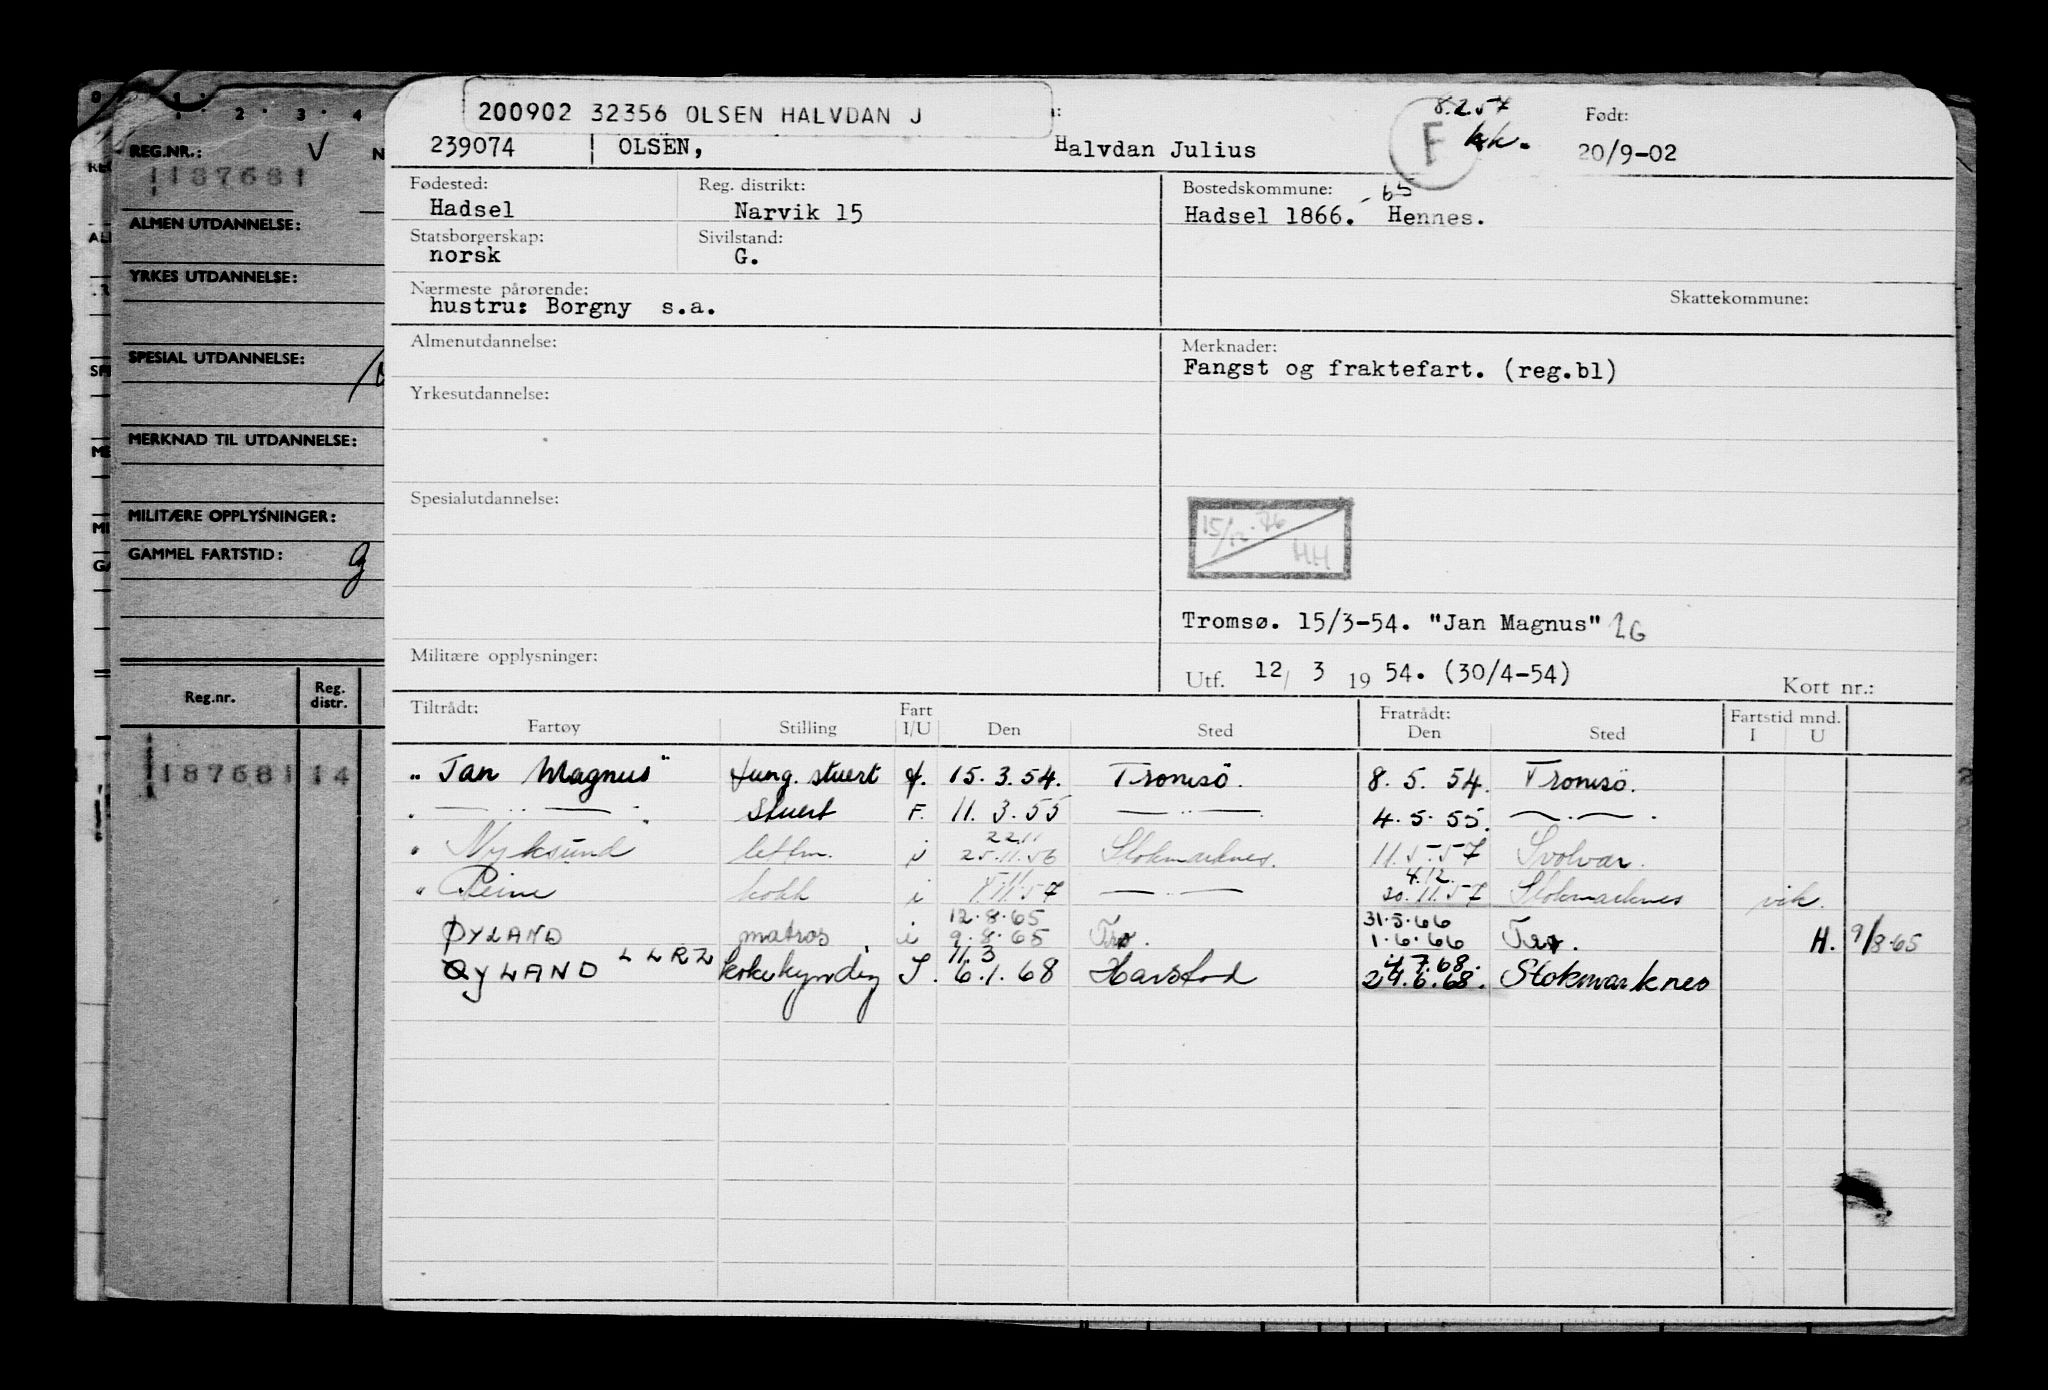 0 1 2 3 4
REG.NR.: V
1187681
ALMEN UTDANNELSE:
YRKES UTDANNELSE:
SPESIAL UTDANNELSE:
MERKNAD TIL UTDANNELSE:
MILITÆRE OPPLYSNINGER:
GAMMEL FARTSTID: g
Reg.nr. Reg. distr.
187681 14
200902 32356 OLSEN HALVDAN J
239074 OLSEN, Halvdan Julius F 8.2.57 kk. Født: 20/9-02
Fødested: Reg. distrikt: Bostedskommune:
Hadsel Narvik 15 Hadsel 1866. -65 Hennes.
Statsborgerskap: Sivilstand:
norsk G.
Nærmeste pårørende: Skattekommune:
hustru: Borgny s.a.
Almenutdannelse: Merknader:
Fangst og fraktefart. (reg.bl)
Yrkesutdannelse:
Spesialutdannelse:
15/12.76 HH
Tromsø. 15/3-54. "Jan Magnus" 2G
Militære opplysninger:
Utf. 12/ 3 19 54. (30/4-54) Kort nr.:
Tiltrådt: Fart Fratrådt: Fartstid mnd.
Fartøy Stilling I/U Den Sted Den Sted I U
"Jan Magnus" fung. stuert f. 15.3.54. Tromsö. 8.5.54. Tromsö.
" — " — . Stuert F. 11.3.55 — . — . 4.5.55. — . — .
22.11
" Nyksund lettm. i 25.11.56 Stokmarknes. 11.5.57 Svolvær.
4.12.
" Reine kokk i 11.57 — — 20.11.57 Stokmarknes vik.
12.8.65 31.5.66
ØYLAND matros i 9.8.65 Trø. 1.6.66 Trø. H. 9/8.65
11.3 4.7.68.
ØYLAND LLRZ kokekyndig I. 6.1.68 Harstad 29.6.68. Stokmarknes